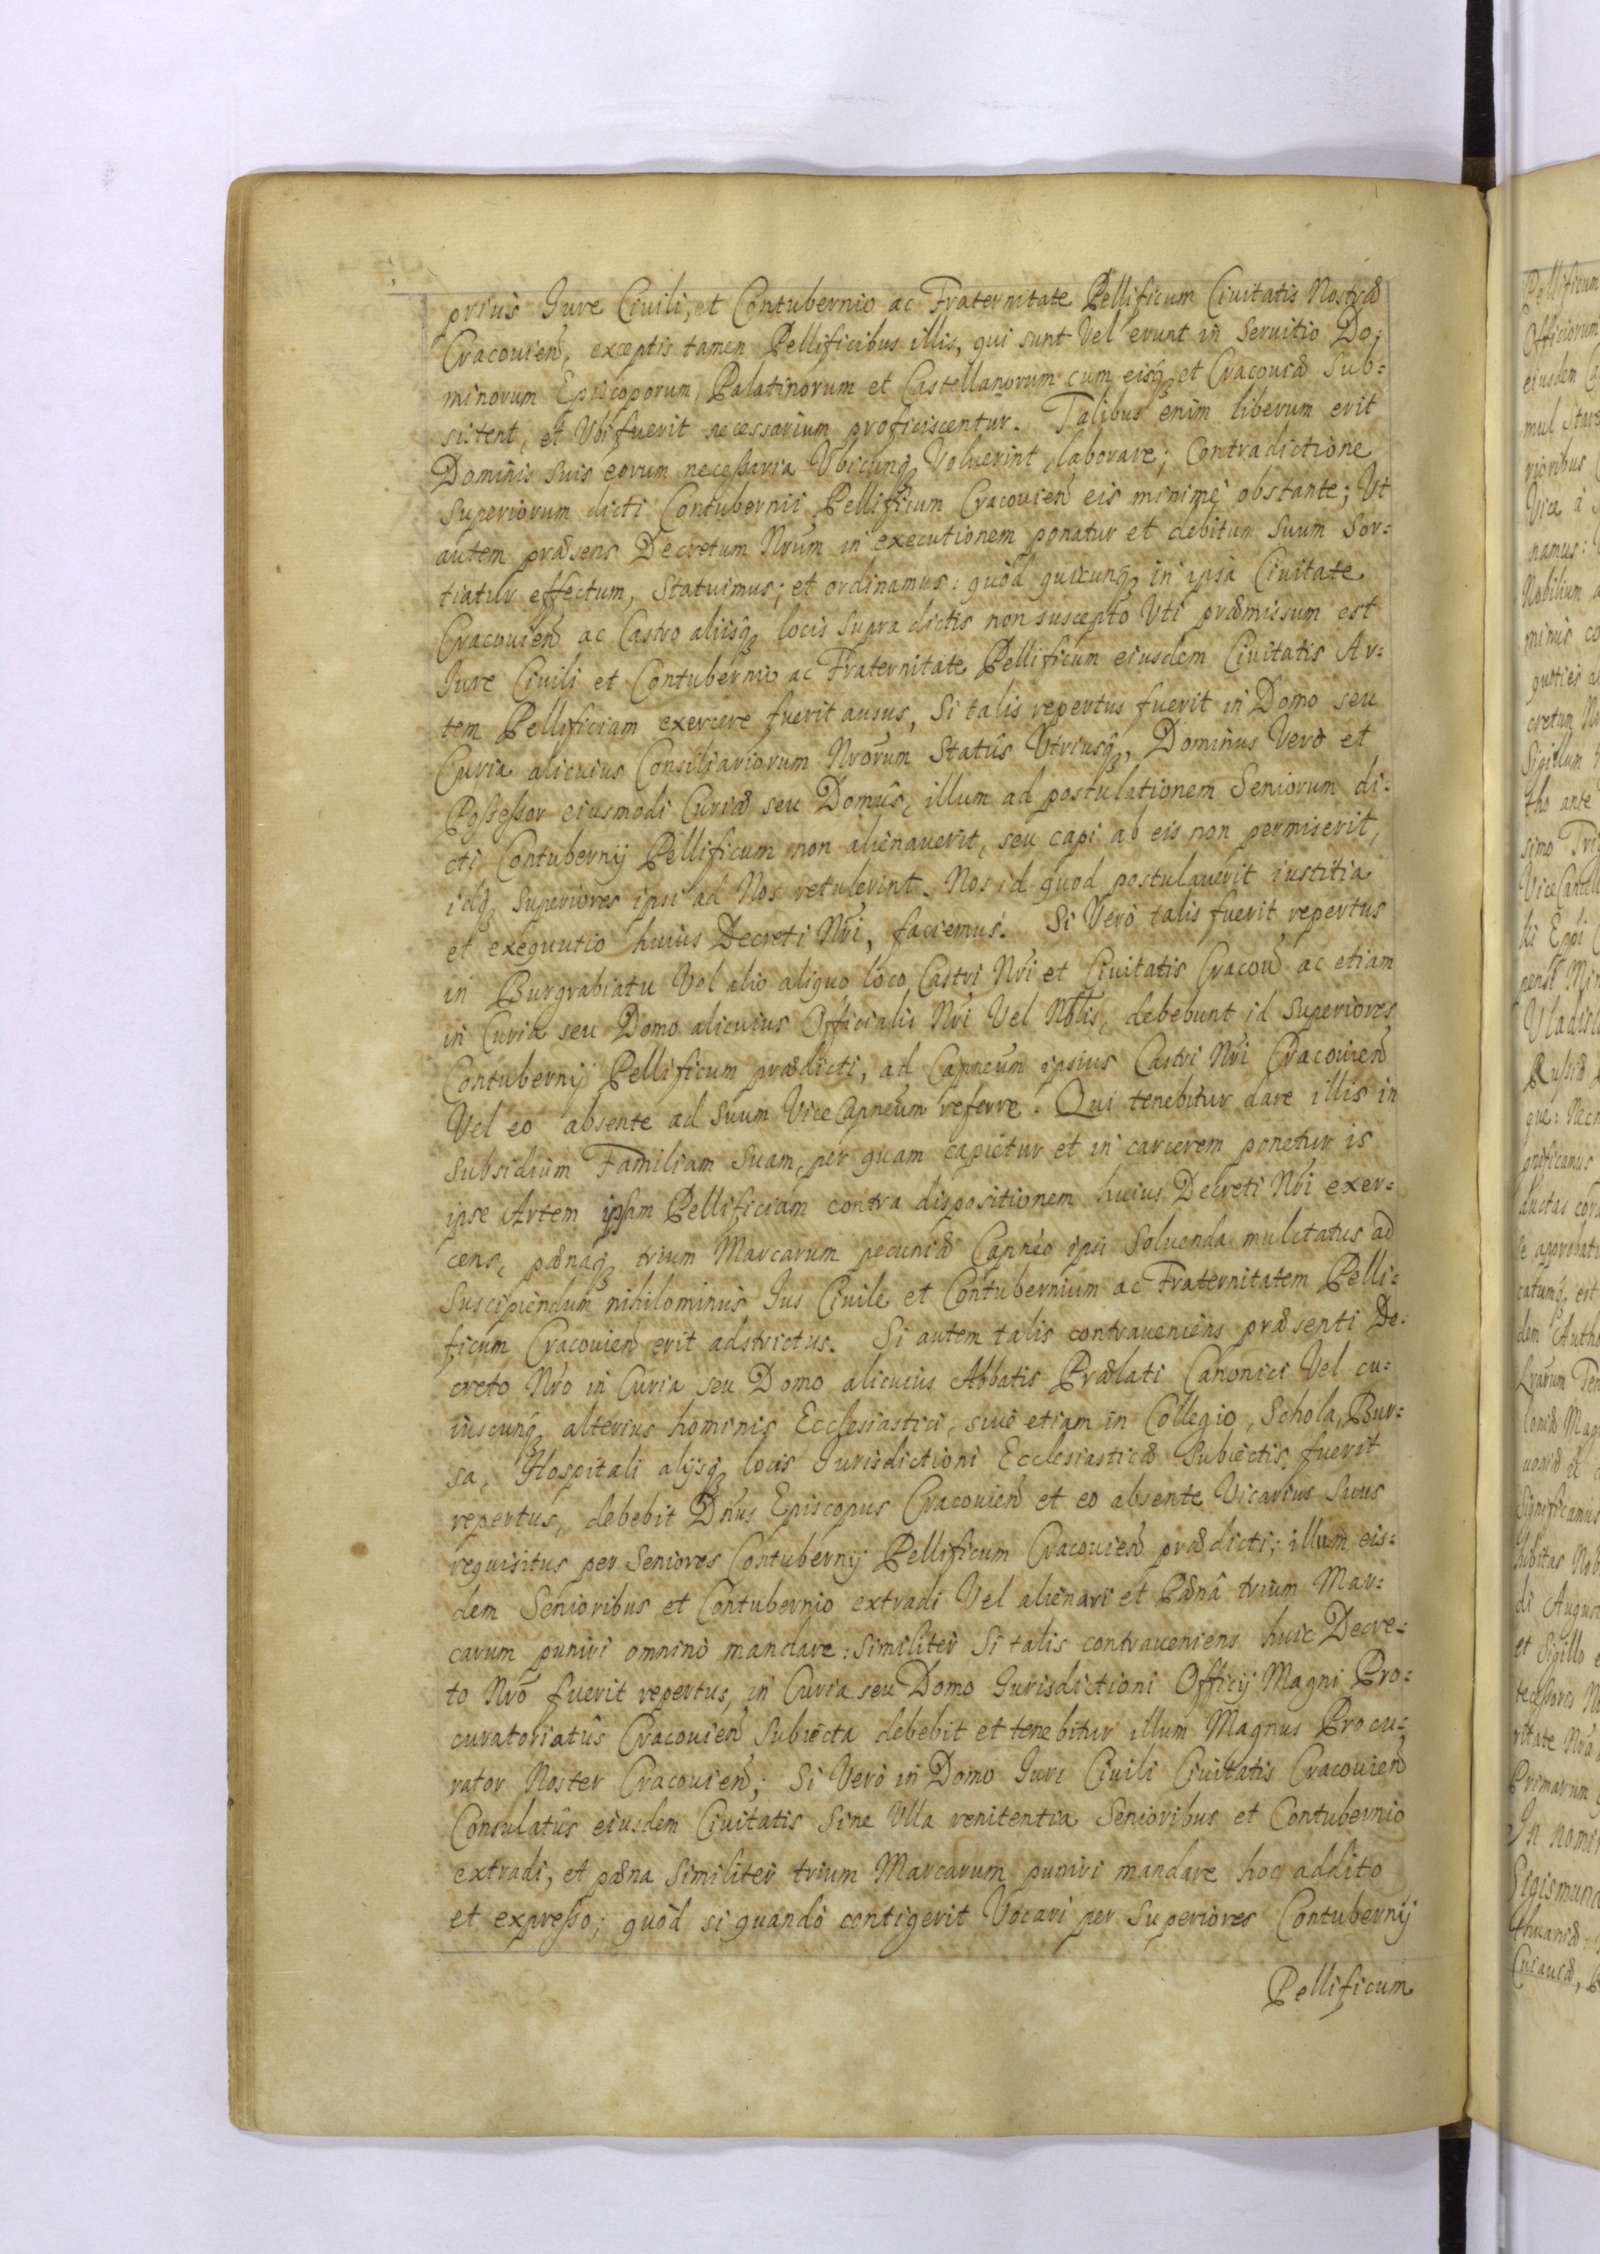 priùs Jure Civili, et Contubernio ac Fraternitate Pellificum Civitatis Nostræ
Cracouien, exceptis tamen Pellificibus illis, qui sunt Vel erunt in Seruitio Do:
minorum Episcoporum, Palatinorum et Castellanorum cum eisq, et Cracouiæ Sub:
sistent, et Vbi fuerit necessarium proficiscentur. Talibus enim liberum erit
Dominis suis eorum necessaria Vbicunq, Voluerint, laborare; Contradictione
Superiorum dicti Contubernii Pellificum Cracouien eis minimè obstante; Vt
autem præsens Decretum Nrum in executionem ponatur et debitum Suum Sor:
tiatur effectum, Statuimus; et ordinamus: quòd quicunq, in ipsa Ciuitate
Cracouien ac Castro aliisq, locis supra dictis non suscepto Vti præmissum est
Jure Civili et Contubernio ac Fraternitate Pellificum eiusdem Ciuitatis Ar:
tem Pellificiam exercere fuerit ausus, Si talis repertus fuerit in Domo seu
Curia alicuius Consiliariorum Nrorum Statûs Vtriusq, Dominus Verò et
Possessor eiusmodi Curiæ seu Domûs, illum ad postulationem Seniorum di:
cti Contubernij Pellificum non alienauerit, seu capi ab eis non permiserit,
idq, Superiores ipsi ad Nos retulerint. Nos id quod postulauerit iustitia
et exequutio huius Decreti Nri, faciemus. Si Verò talis fuerit repertus
in Burgrabiatu Vel alio aliquo loco Castri Nri et Ciuitatis Cracou ac etiam
in Curia seu Domo alicuius Officialis Nri Vel Nblis, debebunt id Superiores
Contubernij Pellificum prædicti, ad Capneum ipsius Castri Nri Cracouien
Vel eo absente ad Suum ViceCapneum referre. Qui tenebitur dare illis in
subsidium Familiam Suam, per quam capietur et in carcerem ponetur is
ipse Artem ipsam Pellificiam contra dispositionem huius Decreti Nri exer:
cens, pænaq, trium Marcarum pecuniæ Capneo ipsi Soluenda mulctatus ad
Suscipiendum nihilominùs Jus Civile et Contubernium ac Fraternitatem Pelli:
ficum Cracouien erit adstrictus. Si autem talis contraueniens præsenti De:
creto Nro in Curia seu Domo alicuius Abbatis Prælati Canonici Vel cu:
iuscunq, alterius hominis Ecclesiastici, siuè etiam in Collegio, Schola, Bur:
sa, Hospitali alijsq, locis Jurisdictioni Ecclesiasticæ Subiectis, fuerit
repertus, debebit Dnus Episcopus Cracouien et eo absente Vicarius Suus
requisitus per Seniores Contubernij Pellificum Cracouien prædicti; illum eis:
dem Senioribus et Contubernio extradi Vel alienari et Pænâ trium Mar:
carum puniri omninò mandare: Similiter Si talis contraueniens huic Decre:
to Nro fuerit repertus, in Curia seu Domo Jurisdictioni Officij Magni Pro:
curatoriatûs Cracouien Subiecta debebit et tenebitur illum Magnus Procu:
rator Noster Cracouien; Si Verò in Domo Juri Civili Ciuitatis Cracouien
Consulatûs eiusdem Ciuitatis Sine Vlla renitentia Senioribus et Contubernio
extradi, et pæna Similiter trium Marcarum puniri mandare hoc addito
et expresso; quòd si quandò contigerit Vocari per Superiores Contubernij
Pellificum